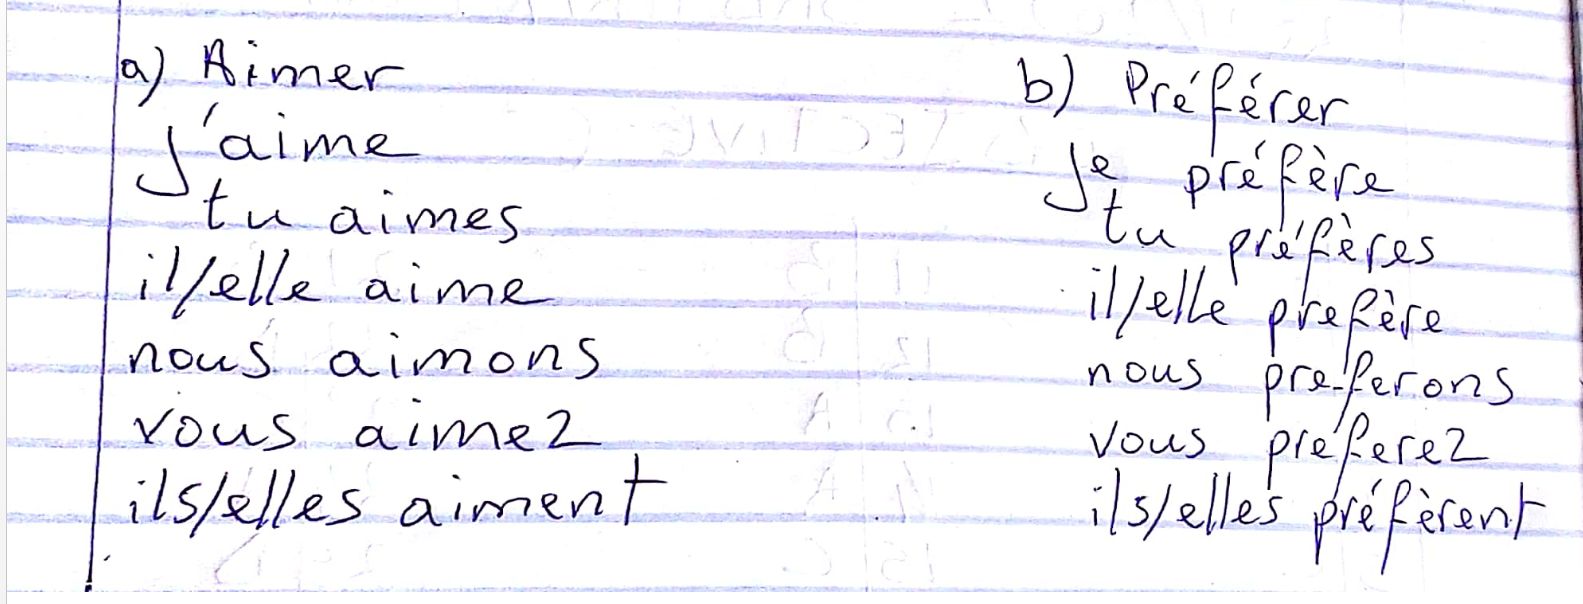 a) Aimer
j'aime
tu aimes
il/elle aime
nous aimons
vous aimez
ils/elles aiment
b) Préférer
je préfère
tu préfères
il/elle prefère
nous preferons
vous préferez
ils/elles préfèrent